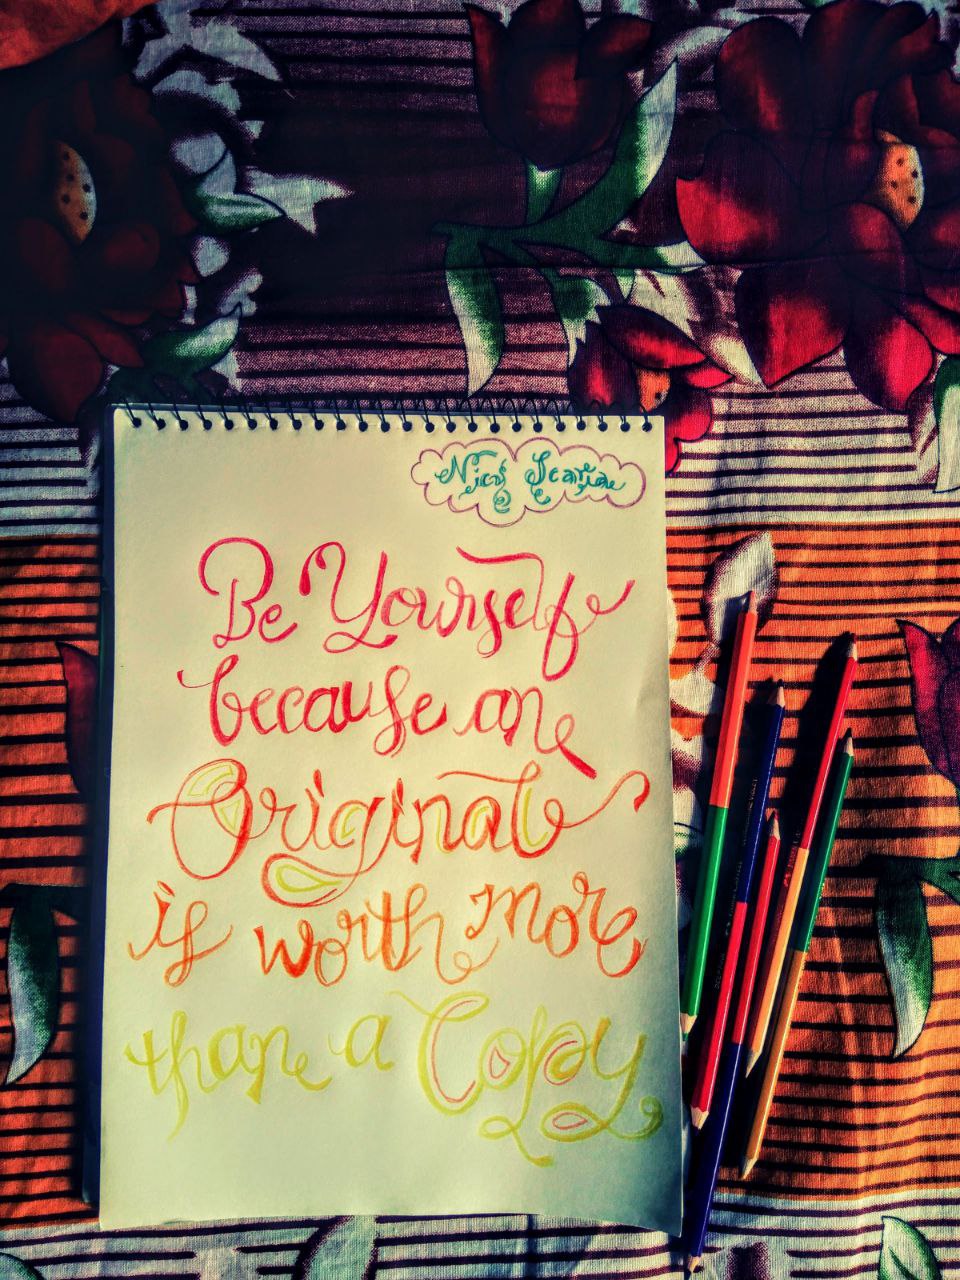 Be Yourself
because an
Original
is worth more
than a Copy